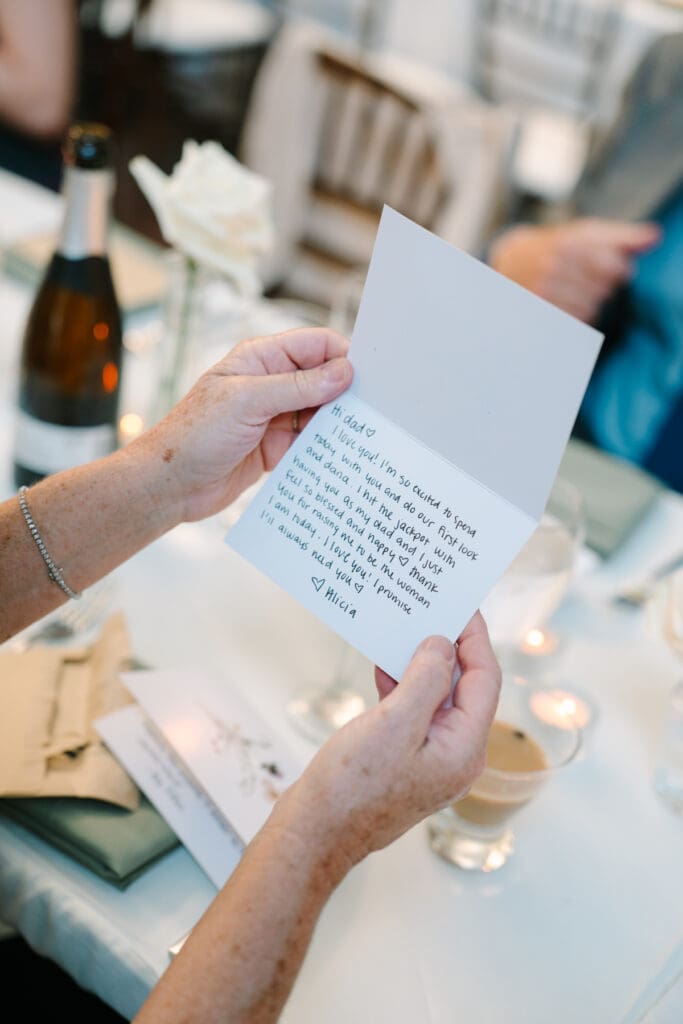 Hi dad♡
I love you! I'm so excited to spend
today with you and do our first look
and dance. I hit the jackpot with
having you as my dad and I just
feel so blessed and happy♡ Thank
you for raising me to be the woman
I am today. I love you! I promise
I'll always need you♡
♡ Alicia